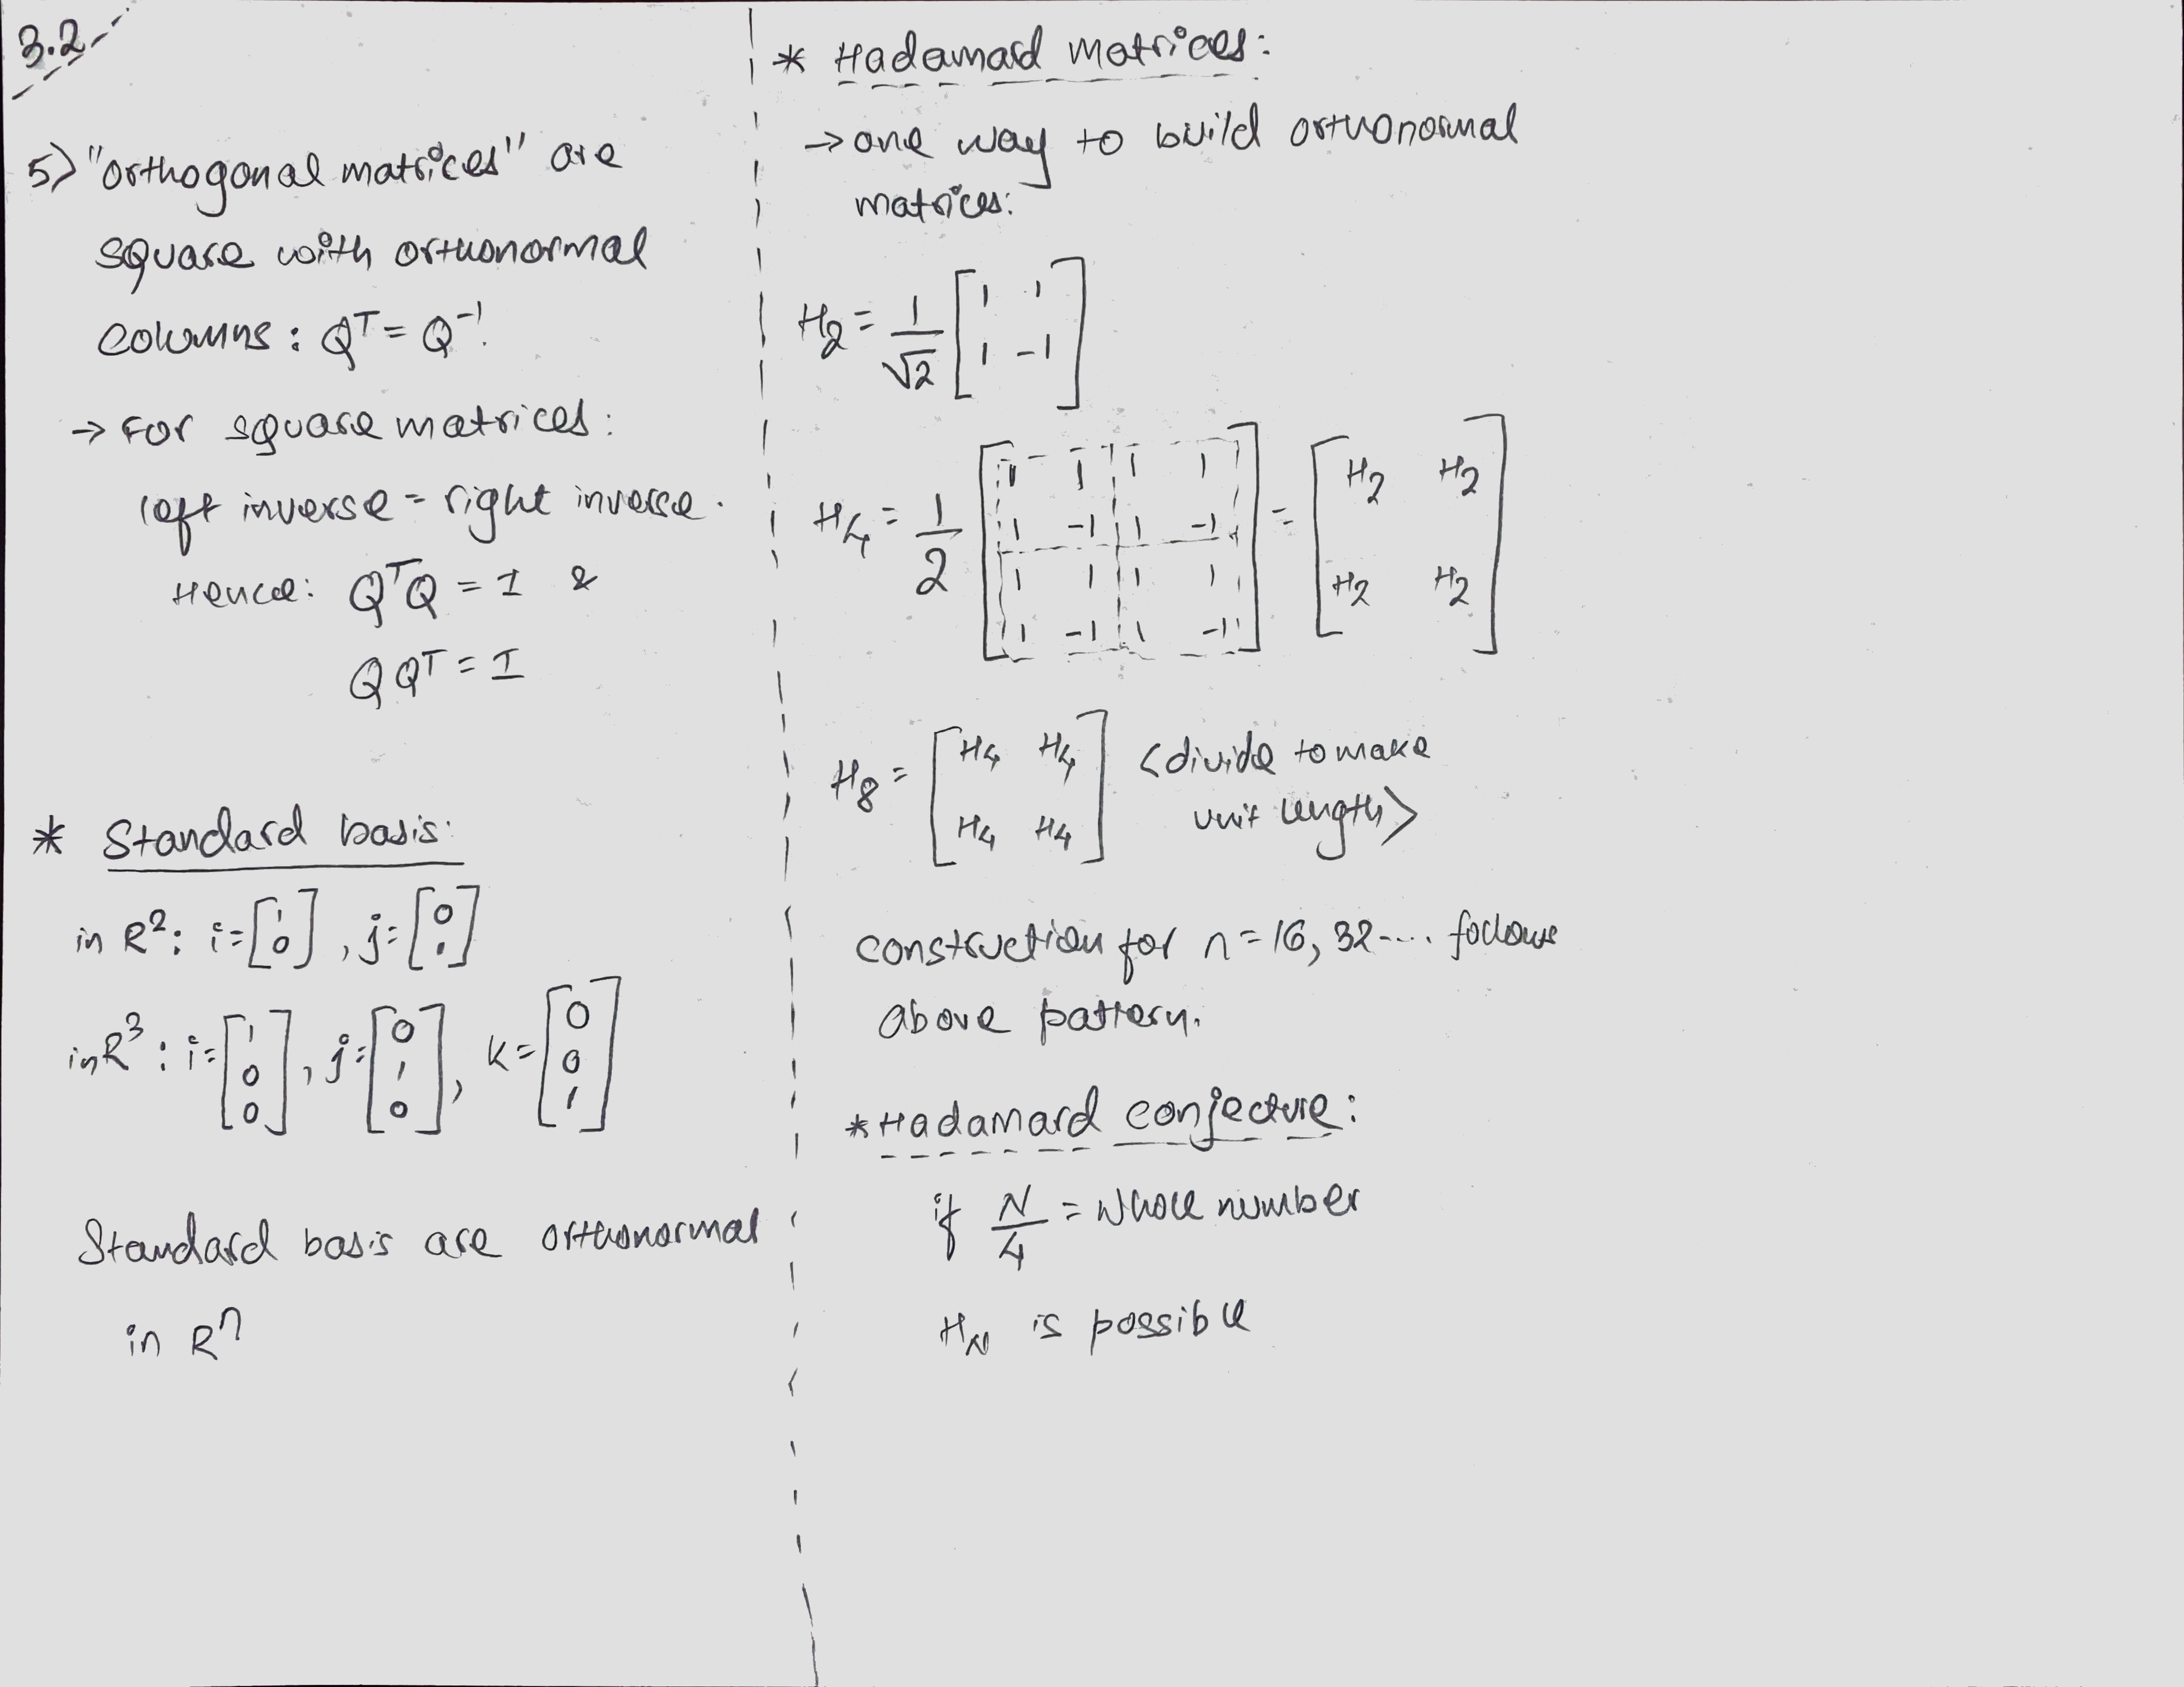 3.2
5) "orthogonal matrices" are
square with orthonormal
columns: Qᵀ = Q⁻¹.
→ For square matrices:
left inverse = right inverse.
Hence: QᵀQ = I &
QQᵀ = I
* Standard basis:
in R²: i = [1 0], j = [0 1]
in R³: i = [1 0 0], j = [0 1 0], k = [0 0 1]
Standard basis are orthonormal
in Rⁿ
* Hadamard matrices:
→ one way to build orthonormal
matrices:
H₂ = 1/√2 [1 1; 1 -1]
H₄ = 1/2 [1 1 1 1; 1 -1 1 -1; 1 1 1 1; 1 -1 1 -1] = [H₂ H₂; H₂ H₂]
H₈ = [H₄ H₄; H₄ H₄] <divide to make
unit length>
construction for n = 16, 32.... follows
above pattern.
* Hadamard conjecture:
if N/4 = whole number
H_N is possible